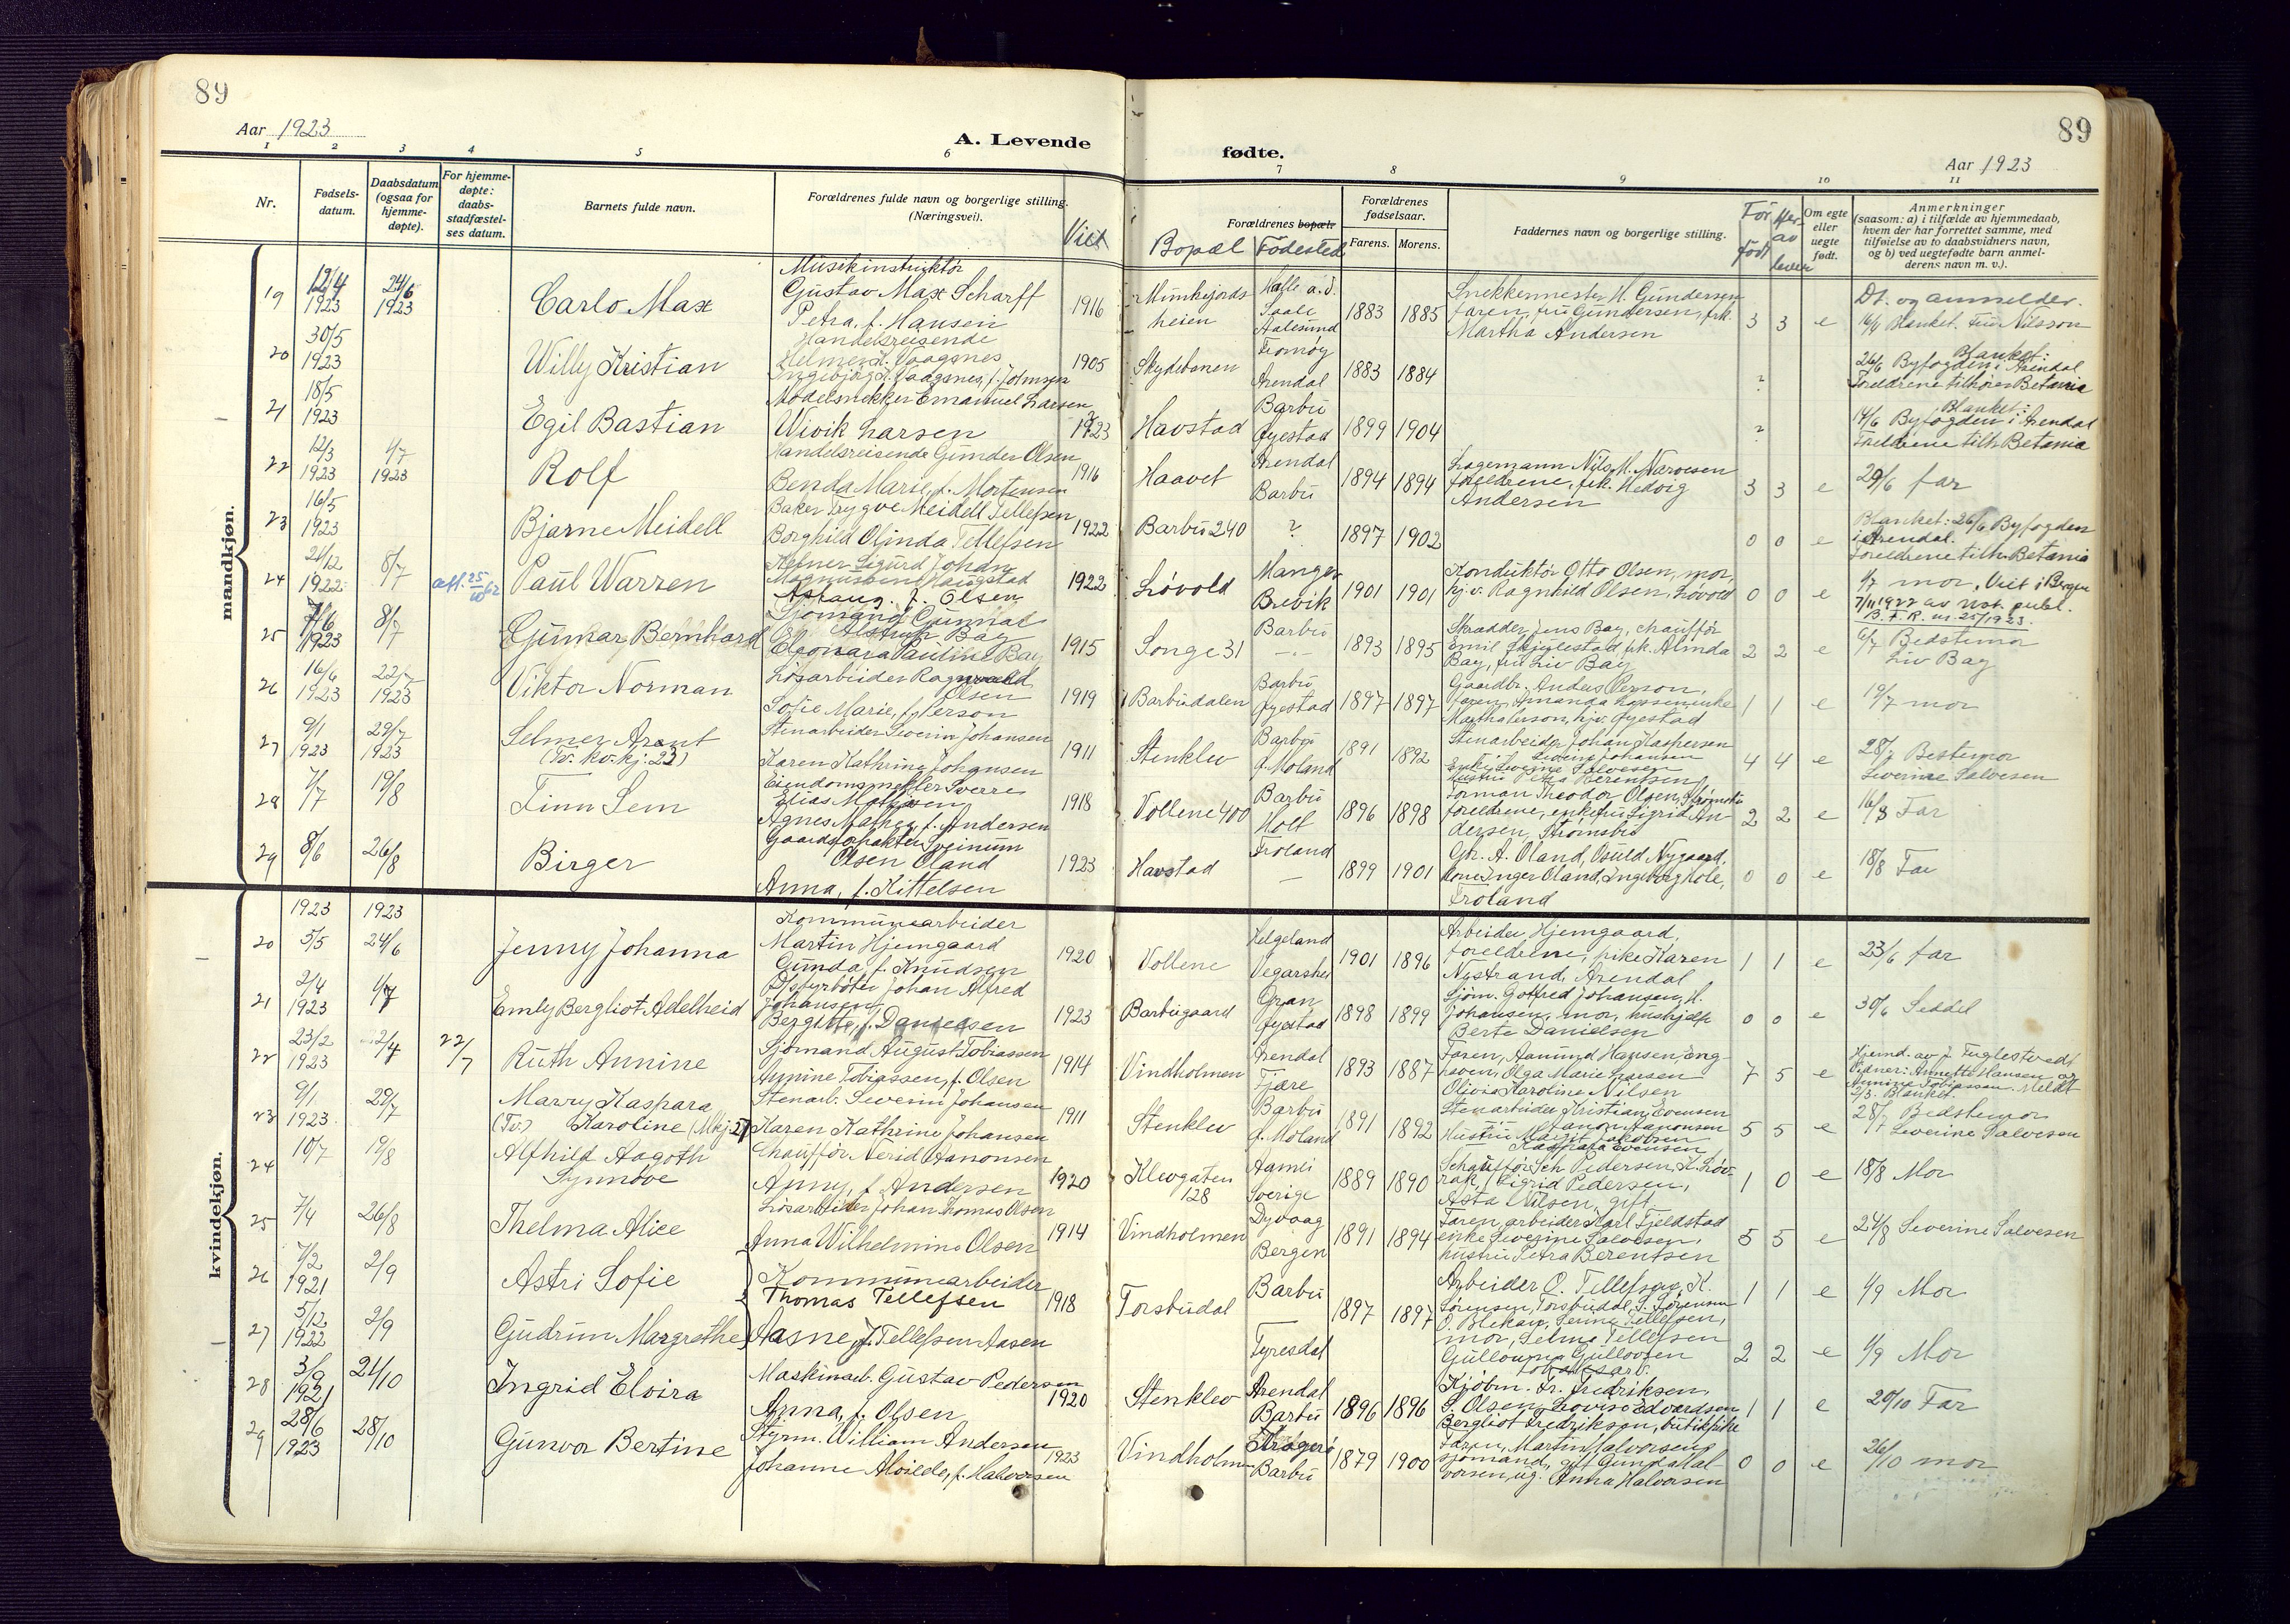 89
89
Aar 1923
A. Levende
fødte.
Aar 1923
1 2 3 4 5 6 7 8 9 10 11
Nr.
Fødsels-
datum.
Daabsdatum
(ogsaa for
hjemme-
døpte).
For hjemme-
døpte:
daabs-
stadfæstel-
ses datum.
Barnets fulde navn.
Forældrenes fulde navn og borgerlige stilling.
(Næringsvei).
Viet
Forældrenes bopæl.
Bopæl Fødested
Forældrenes
fødselsaar.
Farens. Morens.
Faddernes navn og borgerlige stilling.
Før født
Her av lever
Om egte
eller
uegte
født.
Anmerkninger
(saasom: a) i tilfælde av hjemmedaab,
hvem der har forrettet samme, med
tilføielse av to daabsvidners navn,
og b) ved uegtefødte barn anmel-
derens navn m. v.).
mandkjøn.
19 12/4 1923 24/6 1923 Carlo Max
Musikinstruktør
Gustav Max Scharff
Petra, f. Hansen
1916 Munkejords
heien
Halle a. d.
Saale
Aalesund
1883 1885
Snekkermester H. Gundersen
faren, fru Gundersen, frk.
Martha Andersen
3 3 e
Dt. og anmelder.
Blanket. Fru Nilsson
20 30/5 1923 Willy Kristian
Handelsreisende
Helmer K. Vaagsnes
Ingebjørg K. Vaagsnes, f. Johnsen
1905 Skydebanen
Tromøy
Arendal
1883 1884
?
Blanket:
26/6 Byfogden i Arendal
Foreldrene tilhører Betania
21 18/5 1923 Egil Bastian
Modelsnekker Emanuel Larsen
Wivik Larsen
1923 Havstad
Barbu
Øyestad
1899 1904
?
Blanket:
14/6 Byfogden i Arendal
Foreldrene tilh. Betania
22 12/3 1923 1/7 1923 Rolf
Handelsreisende Gunder Olsen
Benda Marie, f. Mortensen
1916 Haavet
Arendal
Barbu
1894 1894
Lagemann Nils M. Narvesen
foreldrene, frk. Hedvig
Andersen
3 3 e
29/6 far
23 16/5 1923 Bjarne Meidell
Baker Trygve Meidell Tellefsen
Borghild Olinda Tellefsen
1922 Barbu 240 ?
1897 1902
0 0 e
Blanket: 26/6 Byfogden
i Arendal.
Foreldrene tilh. Betania
24 21/12 1922 8/7 att. 25/10 62 Paul Warren
Kelner Sigurd Johan
Magnussen Haugstad
Aslaug, f. Olsen
1922 Løvold
Manger
Brevik
1901 1901
Konduktør Otto Olsen, mor,
hj.v. Ragnhild Olsen, Løvold
0 0 e
1/7 mor, Viet i Bergen
7/11 1922 av
B. F. R. nr. 25/1923.
25 7/6 1923 8/7 Gunnar Bernhard
Sjømand Gunnar
Alstrup Bay
Eleonara Pauline Bay
1915 Songe 31
Barbu
-"-
1893 1895
Skrædder Jens Bay, chauffør
Emil Skjulestad, frk. Alinda
Bay, fru Liv Bay
2 2 e
6/7 Bedstemor
Liv Bay
26 16/6 1923 22/7 1923 Viktor Norman
Løsarbeider Ragnvald
Olsen
Sofie Marie, f. Person
1919 Barbudalen
Barbu
Øyestad
1897 1897
Gaardbr. Anders Person,
faren, Amanda enke
Martha Person, hjv. Øyestad
1 1 e
19/7 mor
27 9/1 1923 29/7 1923 Selmer Arent
(Tv. kv.kj. 23)
Stenarbeider Severin Johansen
Karen Kathrine Johansen
1911 Stenklev
Barbu
Ø. Moland
1891 1892
Stenarbeider Johan Kaspersen
Johansen
Enke Severine Salvesen
Hustru Petra Berentsen
4 4 e
28/7 Bestemor
Severine Salvesen
28 7/7 19/8 Finn Sem
Eiendomsmekler Sverre
Elias Mathisen
Agnes Mathea, f. Andersen
1918 Vollene 400
Barbu
Holt
1896 1898
Forman Theodor Olsen, Strømsbu
foreldrene, enkefru Sigrid An-
dersen, Strømsbu
2 2 e
16/8 Far
29 8/6 26/8 Birger
Gaardsforpakter Sveinum
Olsen Oland
Anna, f. Kittelsen
1923 Havstad
Froland
—
1899 1901
Gbr. A. Oland, Osuld Nygaard,
kone Inger Oland, Ingeborg Hole,
Froland
0 0 e
18/8 Far
kvindekjøn.
1923 1923
20 5/5 24/6 Jenny Johanna
Kommunearbeider
Martin Hjemgaard
Gunda, f. Knudsen
1920 Vollene
Helgeland
Vegarshei
1901 1896
Arbeider Hjemgaard,
foreldrene, pike Karen
Nystrand, Arendal
1 1 e
23/6 far
21 2/4 1923 1/7 Emly Bergliot Adelheid
Fyrbøter Johan Alfred
Johansen
Bergitte, f. Danielsen
1923 Barbugaard
Gran
Øyestad
1898 1899
Sjøm. Gotfred Johansen, H.
Johansen, mor, hushjelp
Berte Danielsen
0 0 e
30/6 Seddel
22 23/2 1923 2/4 22/7 Ruth Annine
Sjømand August Tobiassen
Annine Tobiassen, f. Olsen
1914 Vindholmen
Arendal
Fjære
1893 1887
Faren, Aanund Hansen, Eng-
haven, Olga Marie Larsen
Olivia Karoline Nilsen
7 5 e
Hjemd. av J. Fuglestvedt
Vidner: Annette Hansen og
Annine Tobiassen. Meldt
2/3. Blanket.
23 9/1 1923 29/7 Marry Kaspara
(Tv.) Karoline (Mkj. 27)
Stenarb. Severin Johansen
Karen Kathrine Johansen
1911 Stenklev
Barbu
Ø. Moland
1891 1892
Stenarbeider Kristian Evensen
Aanon Aanonsen
Hustru Margit Jakobsen
Kaspara Evensen
5 5 e
28/7 Bedstemor
Severine Salvesen
24 10/7 19/8 Alfhild Aagoth
Synnøve
Chauffør Nerid Aanonsen
Anny, f. Andersen
1920 Klevgaten
128
Aamli
Sverige
1889 1890
Schauffør Sch. Pedersen, K. Løv-
rak, Sigrid Pedersen,
Asta Nilsen, gift
1 0 e
18/8 Mor
25 7/4 26/8 Thelma Alice
Løsarbeider Johan Thomas Olsen
Anna Wilhelmine Olsen
1914 Vindholmen
Dyvaag
Bergen
1891 1894
Faren, arbeider Karl Fjeldstad
enke Severine Salvesen,
hustru Petra Berentsen
5 5 e
24/8 Severine Salvesen
26 7/2 1921 2/9 Astri Sofie
Kommunearbeider
Thomas Tellefsen
1918 Torsbudal
Barbu
1897 1897
Arbeider O. Tellefsen, K.
Sørensen, Torsbudal, S. Sørensen
1 1 e
1/9 Mor
27 5/12 1922 2/9 Gudrun Margrethe
Aasne, f. Tellefsen Aasen
Tyresdal
O. Blekan, Tellefsen,
mor, Selma Tellefsen
Gulloung Gullovsen
2 2 e
1/9 Mor
28 3/9 1921 21/10 Ingrid Elvira
Maskinarb. Gustav Pedersen
Anna, f. Olsen
1920 Stenklev
Arendal
Barbu
1896 1896
Kjøbm. Fr. Fredriksen,
S. Olsen, Lovise Edvardsen
Bergliot Fredriksen, butikpike
1 1 e
20/10 Far
29 28/6 1923 28/10 Gunvor Bertine
Styrm. William Andersen
Johanne Alvilde, f. Halvorsen
1923 Vindholmen
Kragerø
Barbu
1879 1900
Faren, Martin Halvorsen,
sjømand, gift Gunda Hal-
vorsen, ug. Anna Halvorsen
0 0 e
26/10 mor